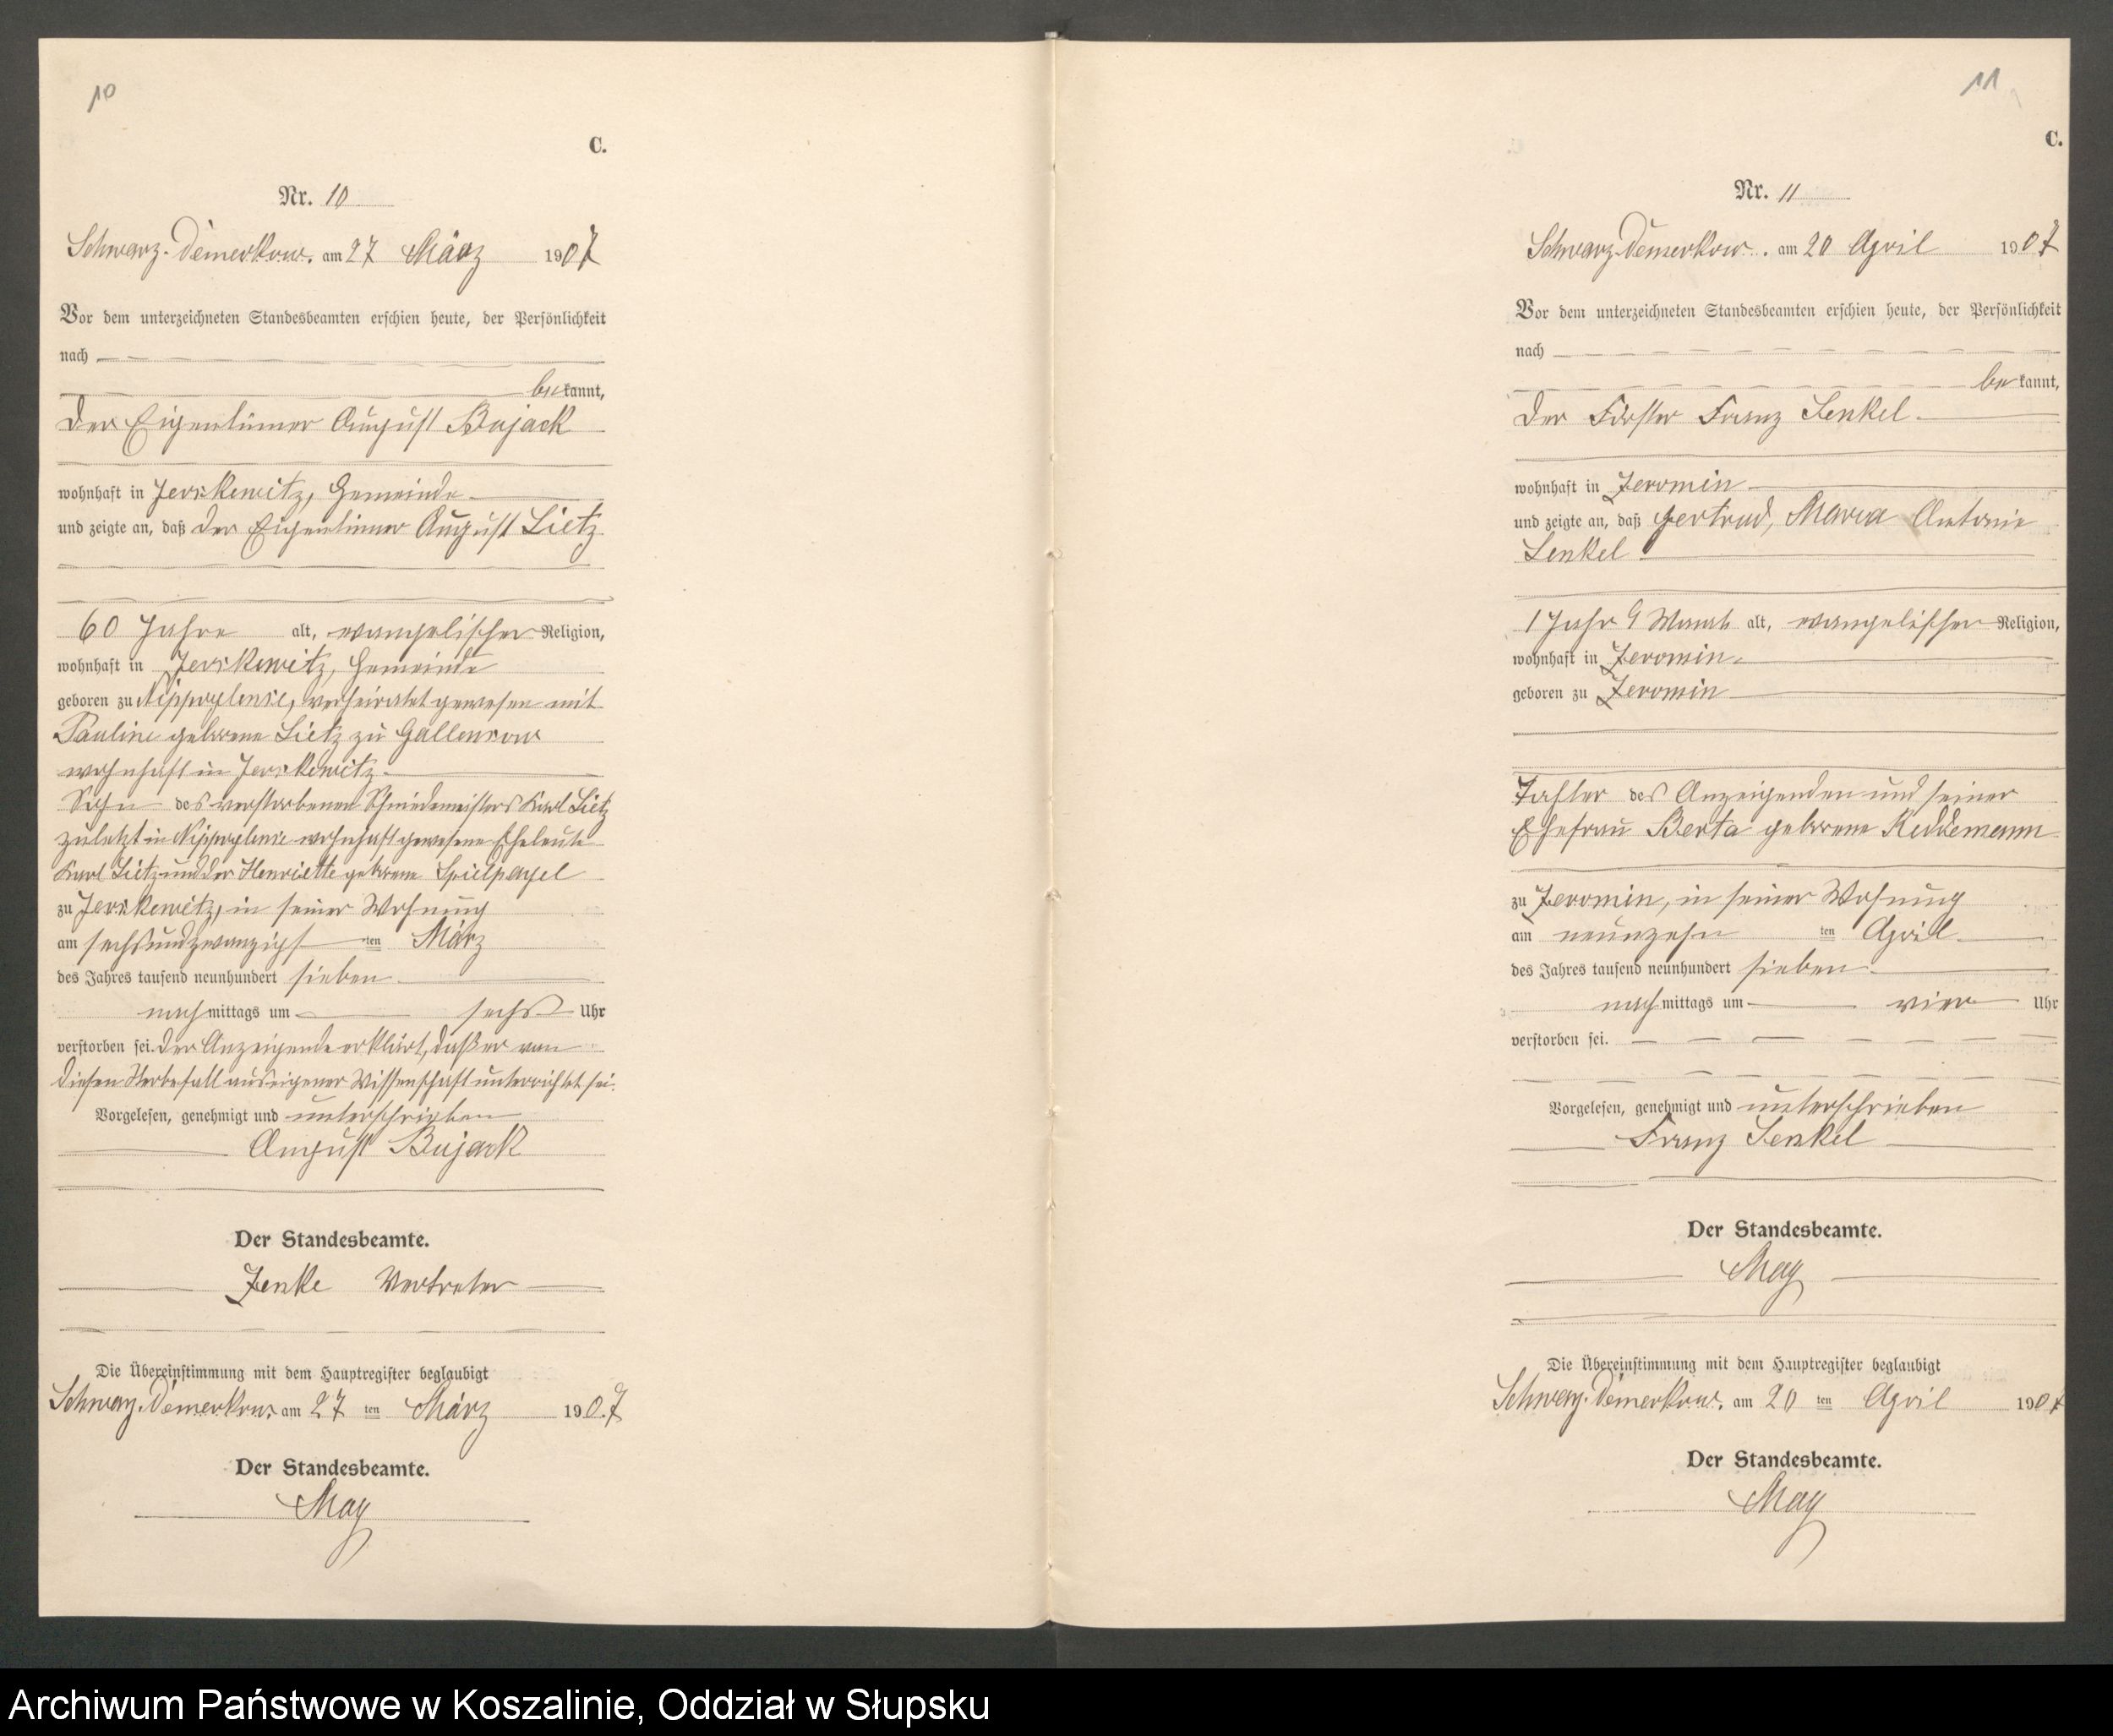 10
C.
Nr. 10
Schwarz-Damerkow, am 27 März 1907
Vor dem unterzeichneten Standesbeamten erschien heute, der Persönlichkeit
nach
bekannt,
der Eigentümer August Bujack
wohnhaft in Jerskewitz, Gemeinde
und zeigte an, daß der Eigentümer August Lietz
60 Jahre alt, evangelischer Religion,
wohnhaft in Jerskewitz, Gemeinde
geboren zu Nippoglense, verheiratet gewesen mit
Pauline geborene Lietz zu Gallensow
wohnhaft in Jerskewitz
Sohn des verstorbenen Schmiedemeisters Karl Lietz
zuletzt in Nippoglense wohnhaft gewesene Eheleute
Karl Lietz und der Henriette geborene Spielpagel
zu Jerskewitz, in seiner Wohnung
am sechsundzwanzigsten März
des Jahres tausend neunhundert sieben
nachmittags um sechs Uhr
verstorben sei. Der Anzeigende erklärt, daß er von
diesen Sterbefall aus eigener Wissenschaft unterrichtet sei.
Vorgelesen, genehmigt und unterschrieben
August Bujack
Der Standesbeamte.
Jenke Vertreter
Die Übereinstimmung mit dem Hauptregister beglaubigt
Schwarz-Damerkow am 27 ten März 1907
Der Standesbeamte.
May
11
C.
Nr. 11
Schwarz-Damerkow. am 20 April 1907
Vor dem unterzeichneten Standesbeamten erschien heute, der Persönlichkeit
nach
bekannt,
der Förster Franz Senkel
wohnhaft in Jeromin
und zeigte an, daß Gertrud, Maria Antonie
Senkel
1 Jahr 9 Monat alt, evangelischer Religion,
wohnhaft in Jeromin
geboren zu Jeromin
Tochter des Anzeigenden und seiner
Ehefrau Berta geborene Keddemann
zu Jeromin, in seiner Wohnung
am neunzehn ten April
des Jahres tausend neunhundert sieben
nachmittags um vier Uhr
verstorben sei.
Vorgelesen, genehmigt und unterschrieben
Franz Senkel
Der Standesbeamte.
May
Die Übereinstimmung mit dem Hauptregister beglaubigt
Schwarz-Damerkow, am 20 ten April 1907
Der Standesbeamte.
May
Archiwum Państwowe w Koszalinie, Oddział w Słupsku